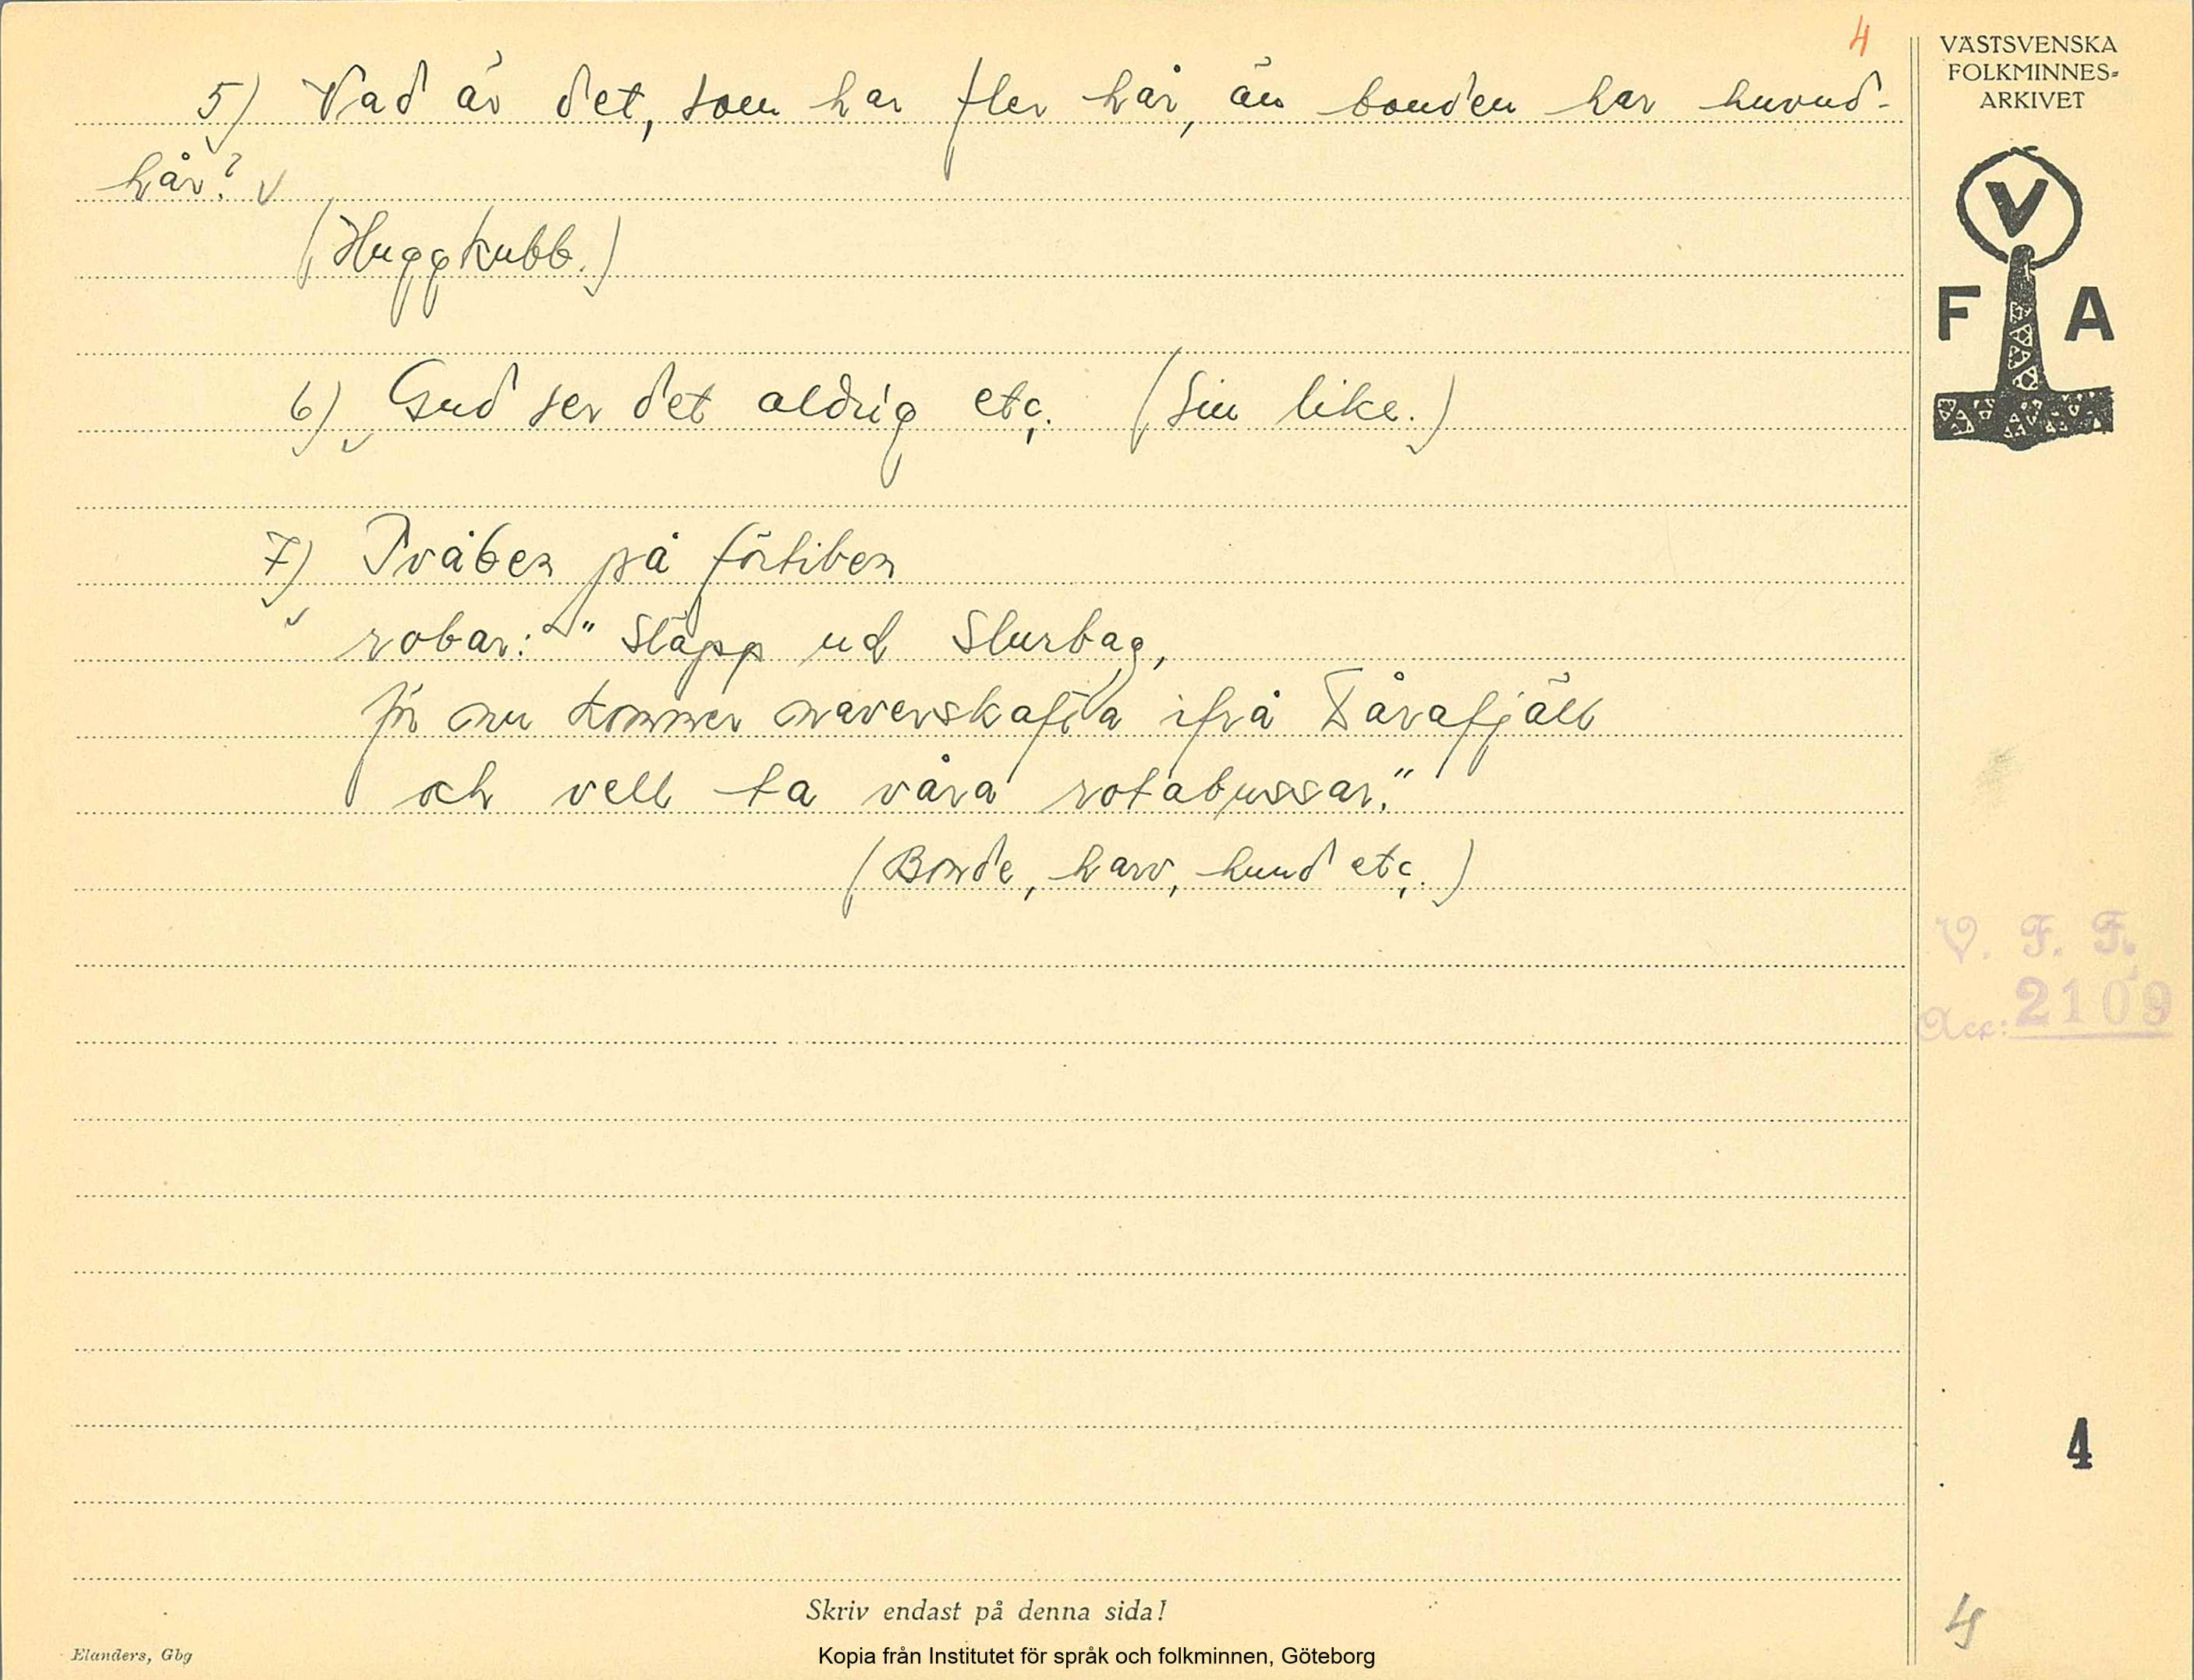 4
VÄSTSVENSKA
FOLKMINNES=
ARKIVET
V
F A
5) Vad är det, som har fler hår, än bonden har huvud-
hår? v
(Huggkubb.)
6) Gud ser det aldrig etc. (Sin like.)
7) Tvåben på förtiben
robar: " Släpp ud Slurbag,
för nu kommer naverskafta ifrå Tårafjäll
och vell ta våra rotabussar."
(Bonde, harv, hund etc.)
V. F. F.
Acc: 2109
4
4
Skriv endast på denna sida!
Elanders, Gbg
Kopia från Institutet för språk och folkminnen, Göteborg